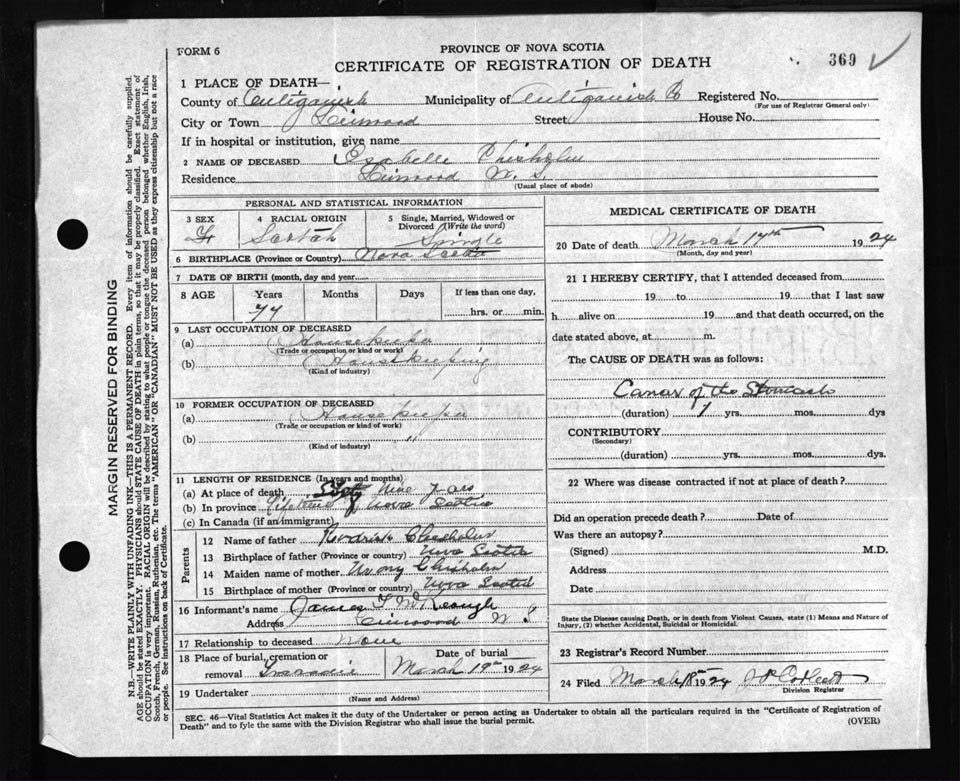 FORM 6
PROVINCE OF NOVA SCOTIA
CERTIFICATE OF REGISTRATION OF DEATH
369
1 PLACE OF DEATH—
County of Antigonish Municipality of Antigonish Co Registered No.
(For use of Registrar General only)
City or Town Linwood Street House No.
If in hospital or institution, give name
2 NAME OF DECEASED Isabelle Chisholm
Residence Linwood N. S.
(Usual place of abode)
PERSONAL AND STATISTICAL INFORMATION
3 SEX
F
4 RACIAL ORIGIN
Scotch
5 Single, Married, Widowed or Divorced (Write the word)
Single
6 BIRTHPLACE (Province or Country) Nova Scotia
7 DATE OF BIRTH (month, day and year)
8 AGE Years Months Days If less than one day,
77 hrs. or min.
9 LAST OCCUPATION OF DECEASED
(a) Housekeeper
(Trade or occupation or kind or work)
(b) Housekeeping
(Kind of industry)
10 FORMER OCCUPATION OF DECEASED
(a) Housekeeper
(Trade or occupation or kind of work)
(b) "
(Kind of industry)
11 LENGTH OF RESIDENCE (In years and months)
(a) At place of death Nine years
(b) In province Lifetime Nova Scotia
(c) In Canada (if an immigrant)
Parents
12 Name of father Chisholm
13 Birthplace of father (Province or country) Nova Scotia
14 Maiden name of mother Chisholm
15 Birthplace of mother (Province or country) Nova Scotia
16 Informant's name James
Address Linwood N. S
17 Relationship to deceased None
18 Place of burial, cremation or removal
Date of burial
March 19th 1924
19 Undertaker
(Name and Address)
MEDICAL CERTIFICATE OF DEATH
20 Date of death March 17th 1924
(Month, day and year)
21 I HEREBY CERTIFY, that I attended deceased from
19 to 19 that I last saw
h alive on 19 and that death occurred, on the
date stated above, at m.
The CAUSE OF DEATH was as follows:
Cancer of the Stomach
(duration) 1 yrs. mos. dys
CONTRIBUTORY
(Secondary)
(duration) yrs. mos. dys.
22 Where was disease contracted if not at place of death?
Did an operation precede death? Date of
Was there an autopsy?
(Signed) M.D.
Address
Date
State the Disease causing Death, or in death from Violent Causes, state (1) Means and Nature of
Injury, (2) whether Accidental, Suicidal or Homicidal.
23 Registrar's Record Number
24 Filed March 18th 1924
Division Registrar
SEC. 46—Vital Statistics Act makes it the duty of the Undertaker or person acting as Undertaker to obtain all the particulars required in the "Certificate of Registration of
Death" and to fyle the same with the Division Registrar who shall issue the burial permit.
(OVER)
MARGIN RESERVED FOR BINDING
N.B.—WRITE PLAINLY WITH UNFADING INK—THIS IS A PERMANENT RECORD. Every item of information should be carefully supplied.
AGE should be stated EXACTLY. PHYSICIANS should STATE CAUSE OF DEATH in plain terms, so that it may be properly classified. Exact statement of
OCCUPATION is very important. RACIAL ORIGIN will be described by stating to what people or tongue the deceased person belonged whether English, Irish,
Scotch, French, German, Russian, Ruthenian, etc. The terms "AMERICAN" OR "CANADIAN" MUST NOT BE USED as they express citizenship but not a race
or people. See instructions on back of Certificate.